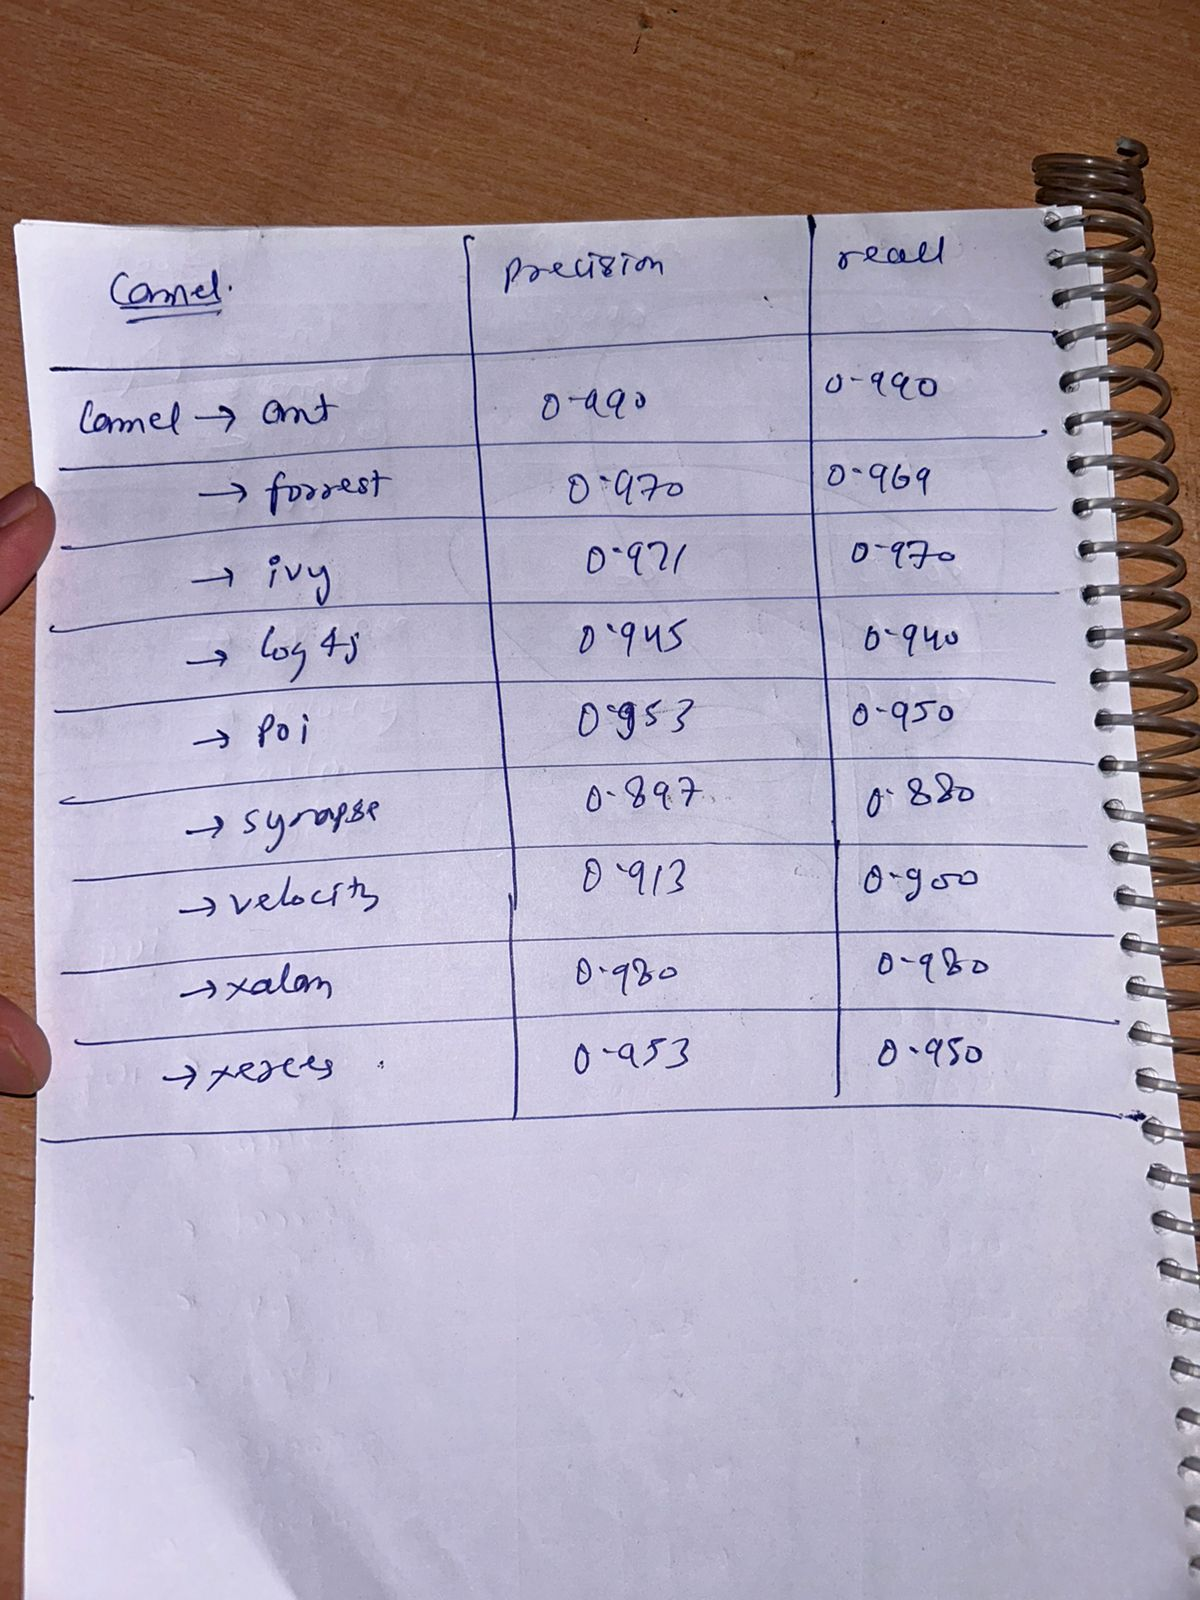 Camel. precision reall
Camel → ant 0.990 0.990
→ forrest 0.970 0.969
→ ivy 0.971 0.970
→ log4j 0.945 0.940
→ poi 0.953 0.950
→ synapse 0.897 0.880
→ velocity 0.913 0.900
→ xalan 0.980 0.980
→ xerces 0.953 0.950